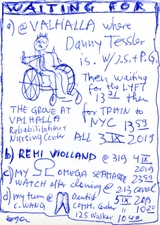 WAITING FOR
a) @ VALHALLA where
Danny Tessler
is. W/25.+P.G.
Then waiting
for the LYFT
13 then
for TRAIN to
13 59
THE GROVE AT
VALHALLA
Rehabilitation &
Nursing Center
ALL 3 IX 2019
b) REMI VIOLLAND @ 319 4 IX 2019
c) MY OMEGA SEAMASTER 23 50
WATCH after cleaning @ 213 canal
d) my turn @ Dentist 5 IX 2019
C. WANG COMM. Center 10 00
125 Walker 10 40